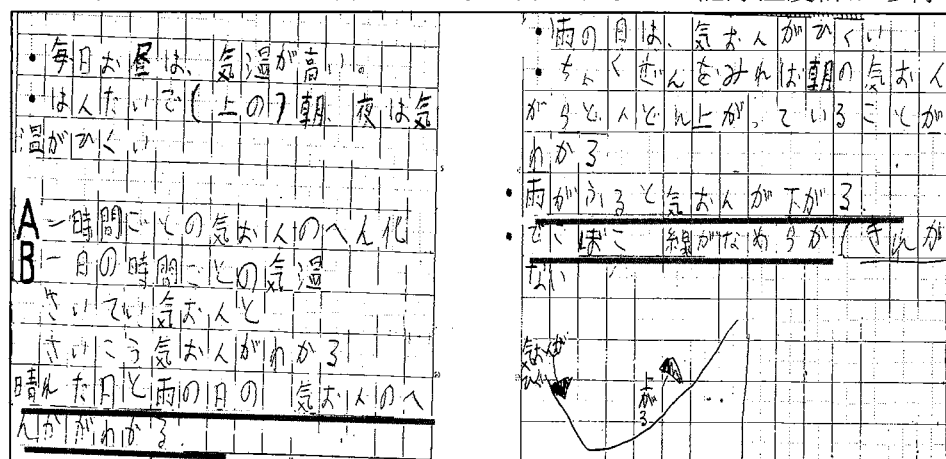 ・毎日お昼は、気温が高い。
・はんたいで(上の)朝、夜は気
温がひくい
A一時間ごとの気おんのへん化
B一日の時間ごとの気温
さいてい気おんと
さいこう気おんがわかる
晴れた日と雨の日の気おんのへ
んかがわかる。
・雨の日は、気おんがひくい
・ちょくせんをみれば朝の気おん
がらどんどん上がっていることが
わかる
・雨がふると気おんが下がる。
・でこぼこ 線がなめらか(きれが
ない
気おんが
ひくい
上がる